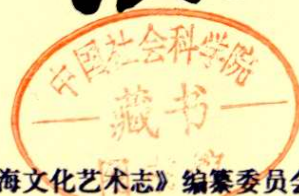 中国社会科学院
藏书
海文化艺术志》编纂委员会